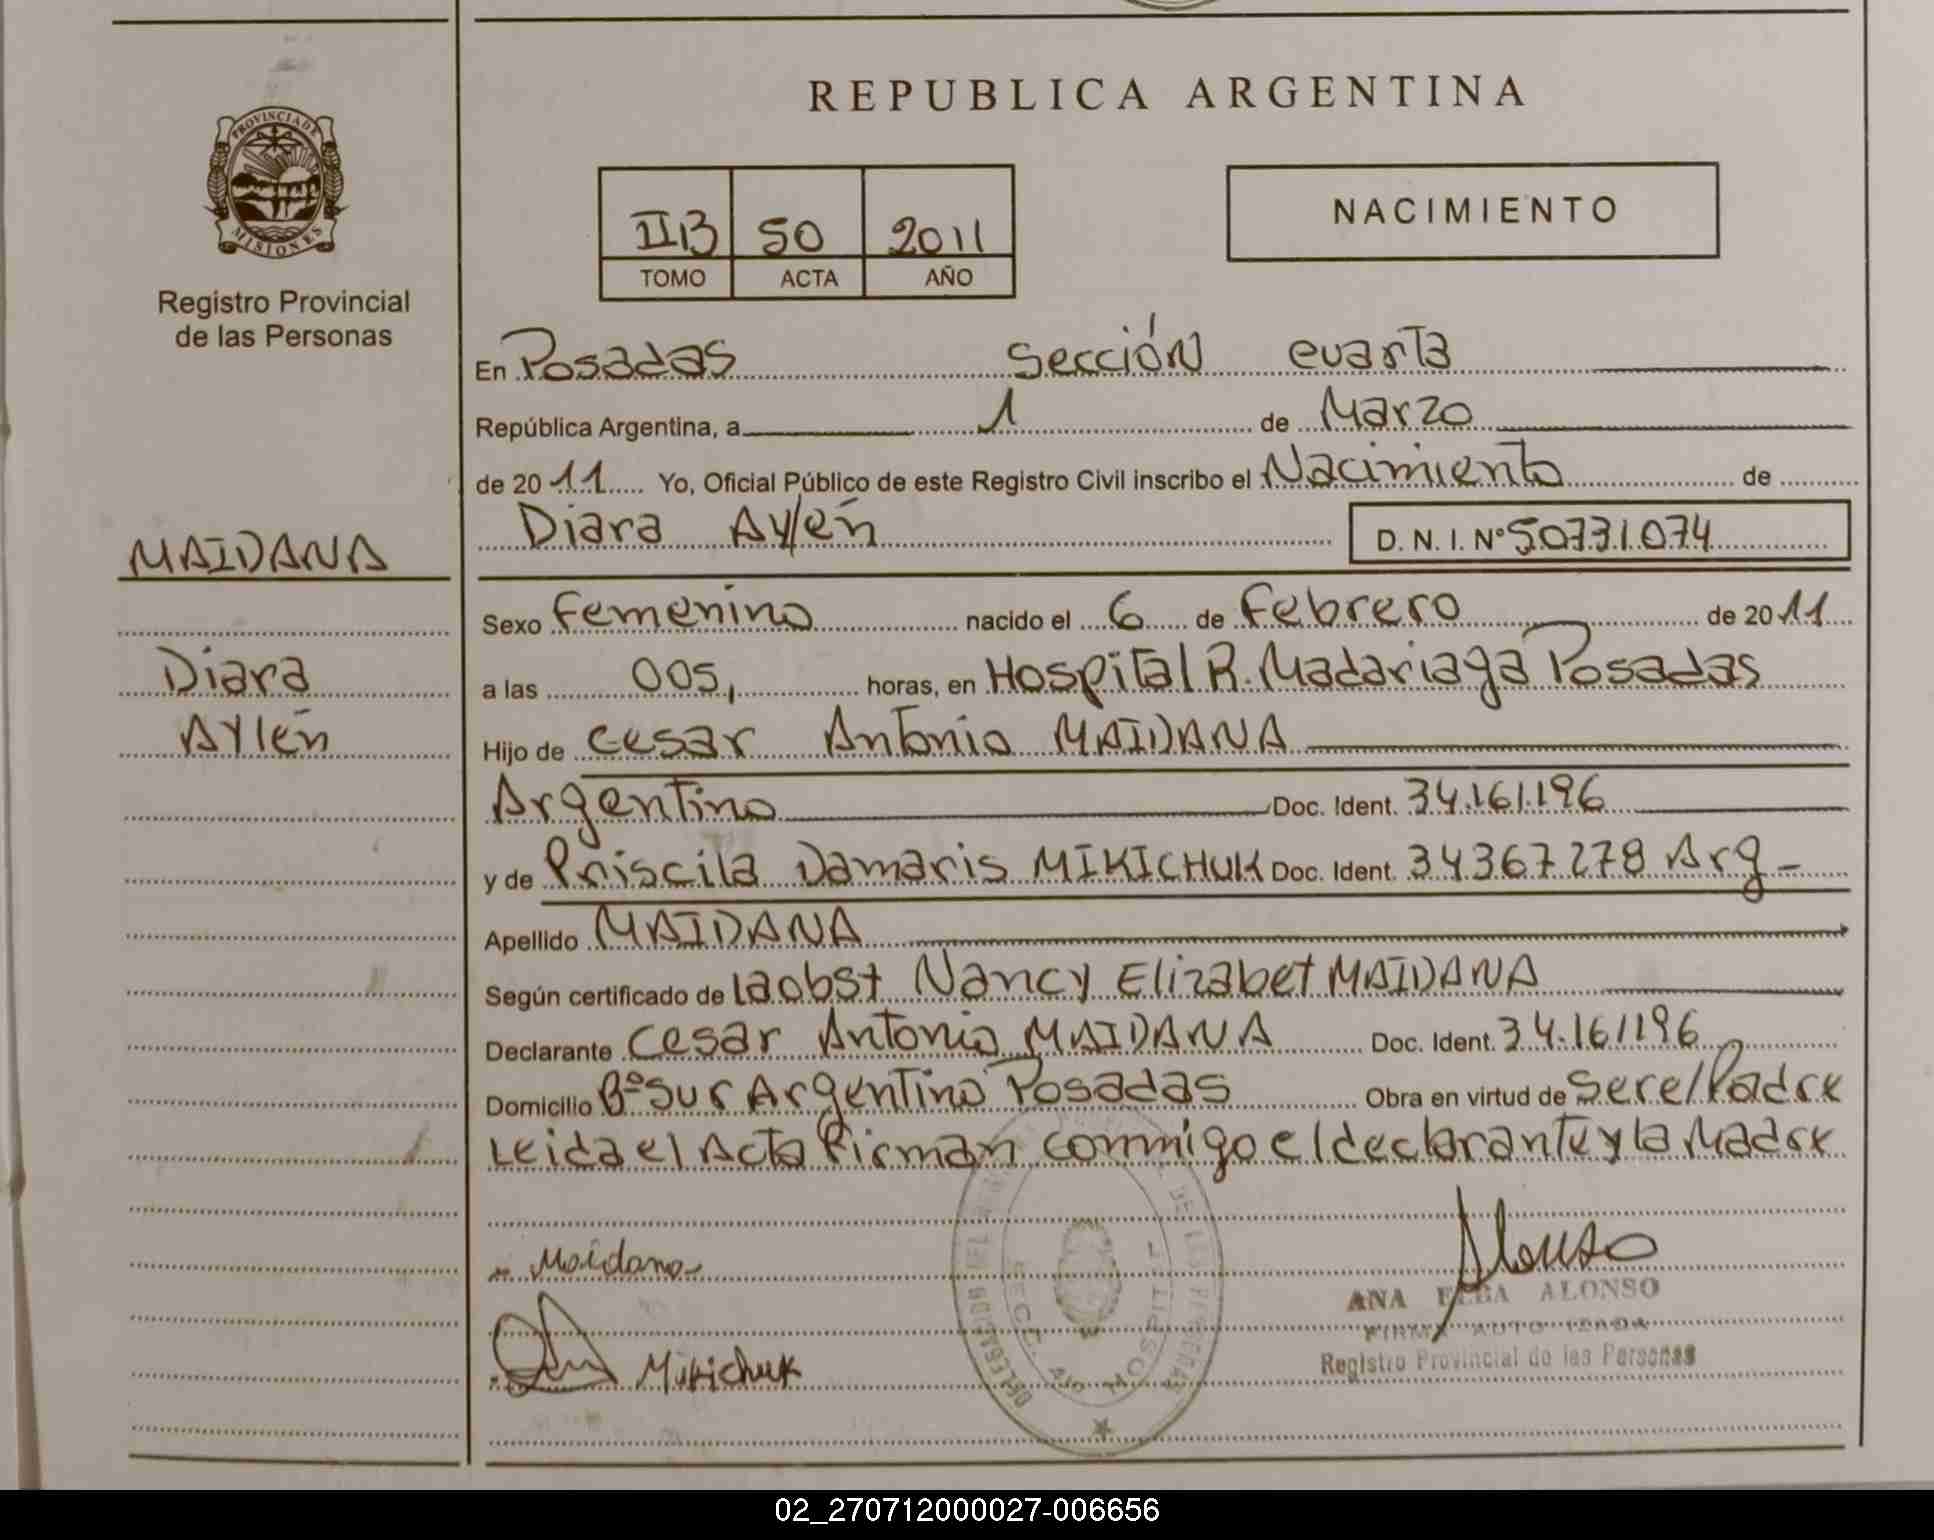 PROVINCIA DE
MISIONES
Registro Provincial
de las Personas
MAIDANA
Diara
Aylén
REPUBLICA ARGENTINA
IIB 50 2011
TOMO ACTA AÑO
NACIMIENTO
En Posadas Sección cuarta
República Argentina, a 1 de Marzo
de 2011 Yo, Oficial Público de este Registro Civil inscribo el Nacimiento de
Diara Aylén D. N. I. Nº 50731074
Sexo Femenino nacido el 6 de Febrero de 2011
a las 005, horas, en Hospital R. Madariaga Posadas
Hijo de Cesar Antonio MAIDANA
Argentino Doc. Ident. 34.161.196
y de Priscila Damaris MIKICHUK Doc. Ident. 34367278 Arg-
Apellido MAIDANA
Según certificado de la obst Nancy Elizabet MAIDANA
Declarante Cesar Antonio MAIDANA Doc. Ident. 34.161196
Domicilio Bº Sur Argentino Posadas Obra en virtud de Ser el Padre
Leida el Acta Firman commigo el declarante y la Madre
Maidana
Alonso
ANA ELBA ALONSO
FIRMA AUTORIZADA
Registro Provincial de las Personas
Mikichuk
02_270712000027-006656